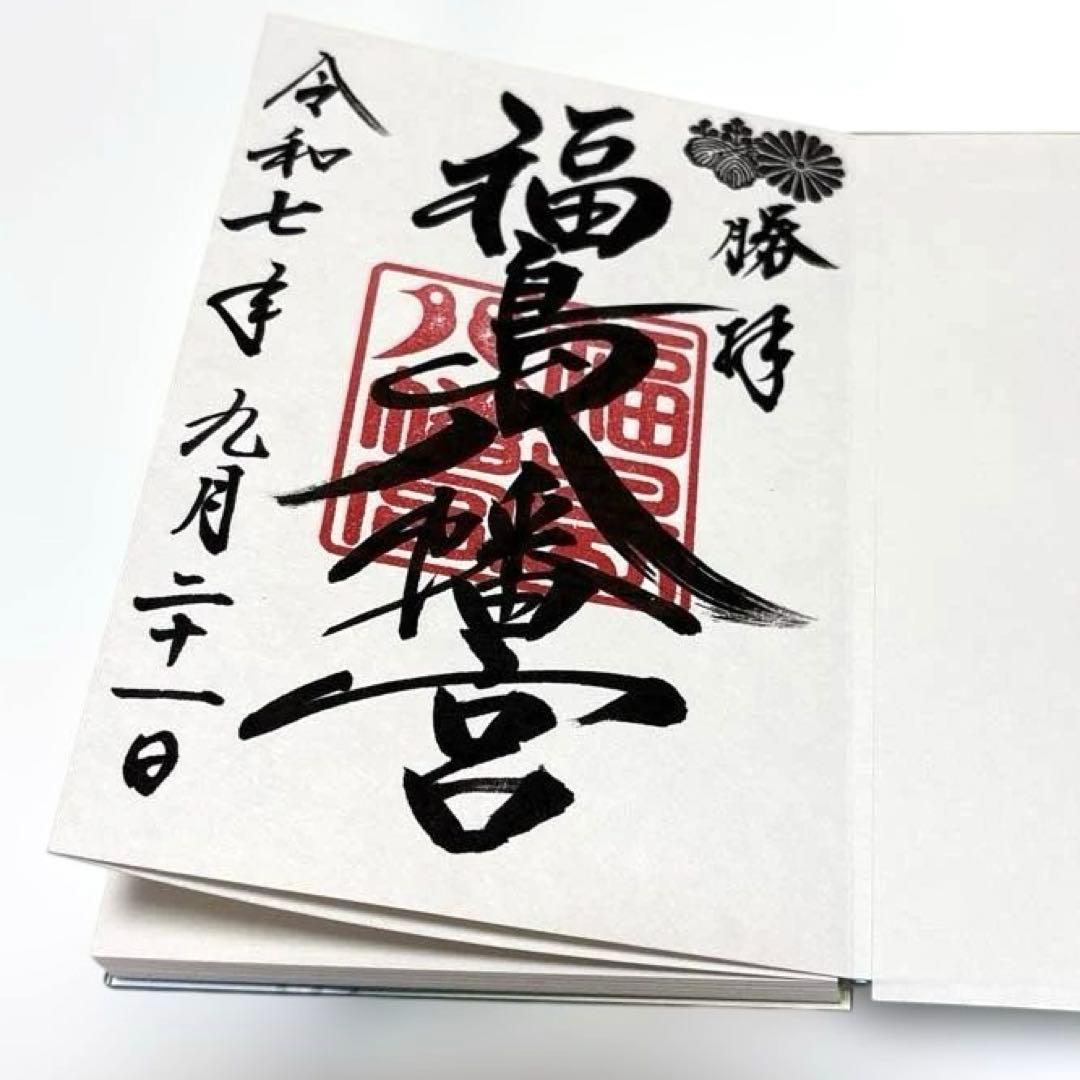 勝拝
福島八幡宮
令和七年九月二十一日
福島
八幡宮